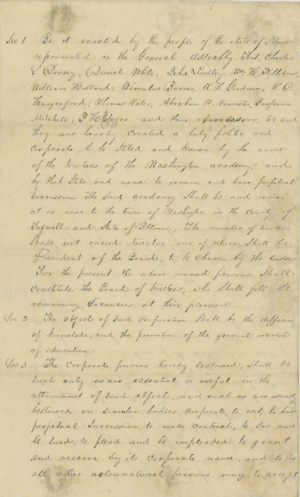 Sec 1 Be it enacted by the people of the State of Illinois
represented in the General Assembly, That Charles
S Dorsey, (Daniel White, John Lindley, Wm H.
William Holland, Benaiah Barnes, R. N.
Thomas Abraham H. Benjamin
Mitchell, and their Successors be and
they are hereby created a body politic and
Corporate to be Stiled and Known by the name
of the Trustees of the Washington academy, and
by that State and name to remain and have perpetual
Succession The Said Academy Shall be and remain
at or near to the town of Washington in the county of
Tazwell and State of Illinois, The number of trustees
Shall not exceed twelve one of whom Shall be
President of the Board, to be chosen by the trustees
For the present the above named persons Shall
constitute the Board of Trustees, who Shall fill the
remaining vacancies at their pleasure
Sec 2 The objects of Said Corporation Shall be the diffusion
of Knowledge, and the promotion of the general interests
of education
Sec 3 The Corporate powers hereby bestowed, Shall be
Such only as are essential or useful in the
attainment of Said objects, and such as are usually
bestowed on Similar bodies corporate, to wit, to have
perpetual Succession to make contracts, to Sue and
be Sued, to plead and be impleaded to grant
and receive by its corporate name, and to do
all other acts as natural persons may, to accept